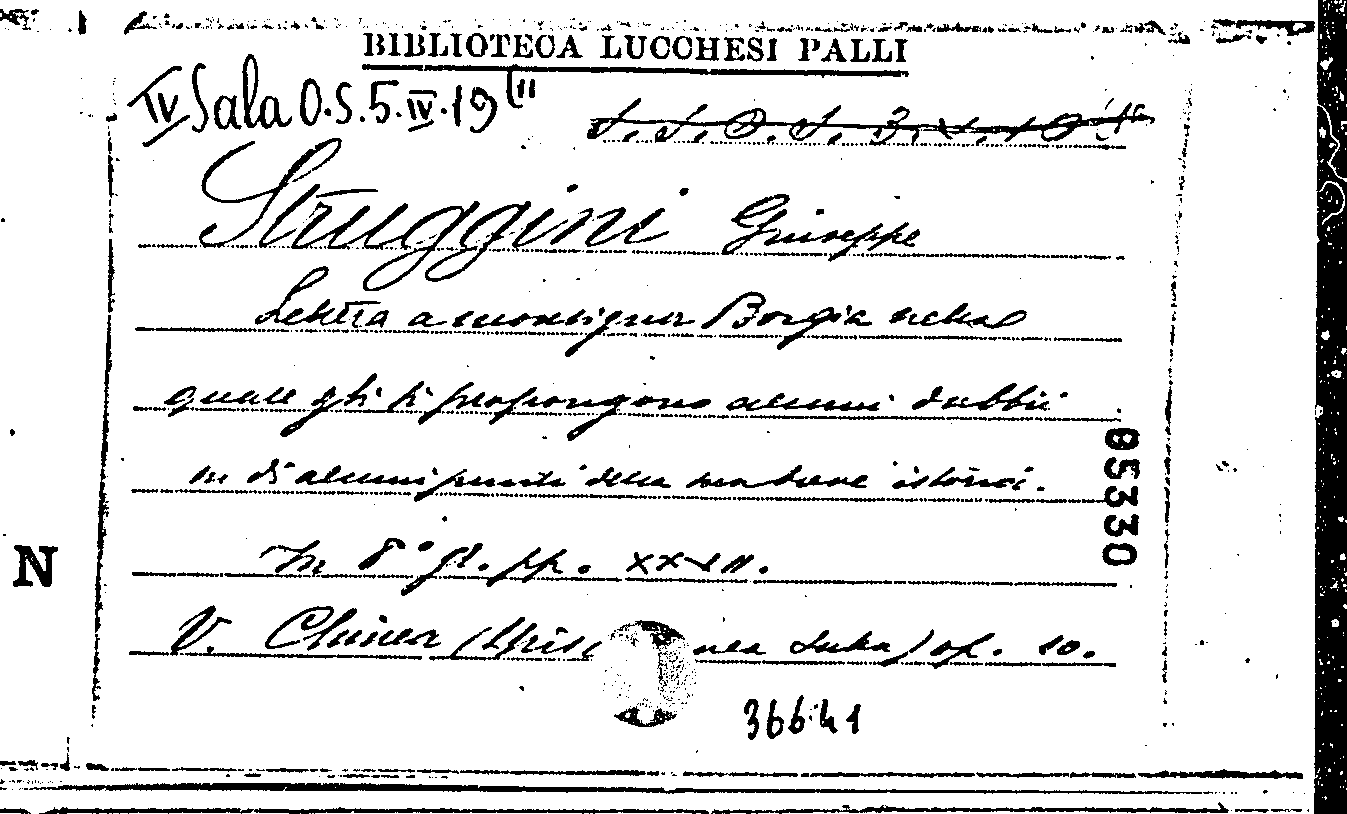 BIBLIOTECA LUCCHESI PALLI
IV Sala O.S.5.IV.19
Struggini Giuseppe
Lettera a monsignor Borgia nella
quale gli si propongono alcuni dubbii
su di alcuni punti della sua breve istoria.
In 8° gr. pp. XXXII.
V. Chinea (Mis nea) op. 10.
05330
N
36641